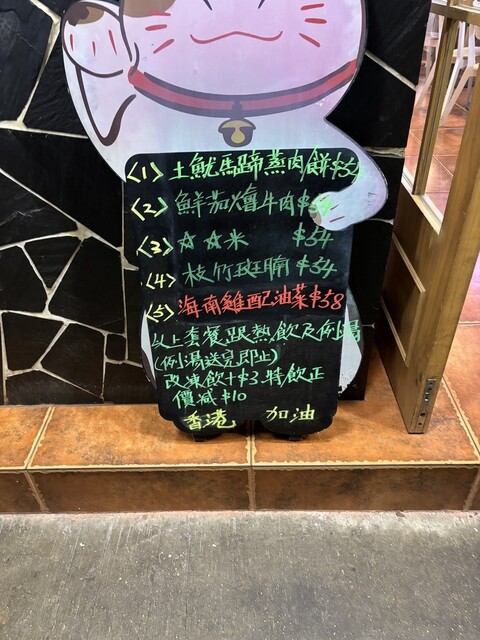 <1> 土魷馬蹄蒸肉餅$54
<2> 鮮茄燴牛肉$54
<3> ☆☆米 $54
<4> 枝竹斑腩 $54
<5> 海南雞配油菜$58
以上套餐跟熱飲及例湯
(例湯送完即止)
改凍飲+$3 特飲正
價減$10
香港 加油